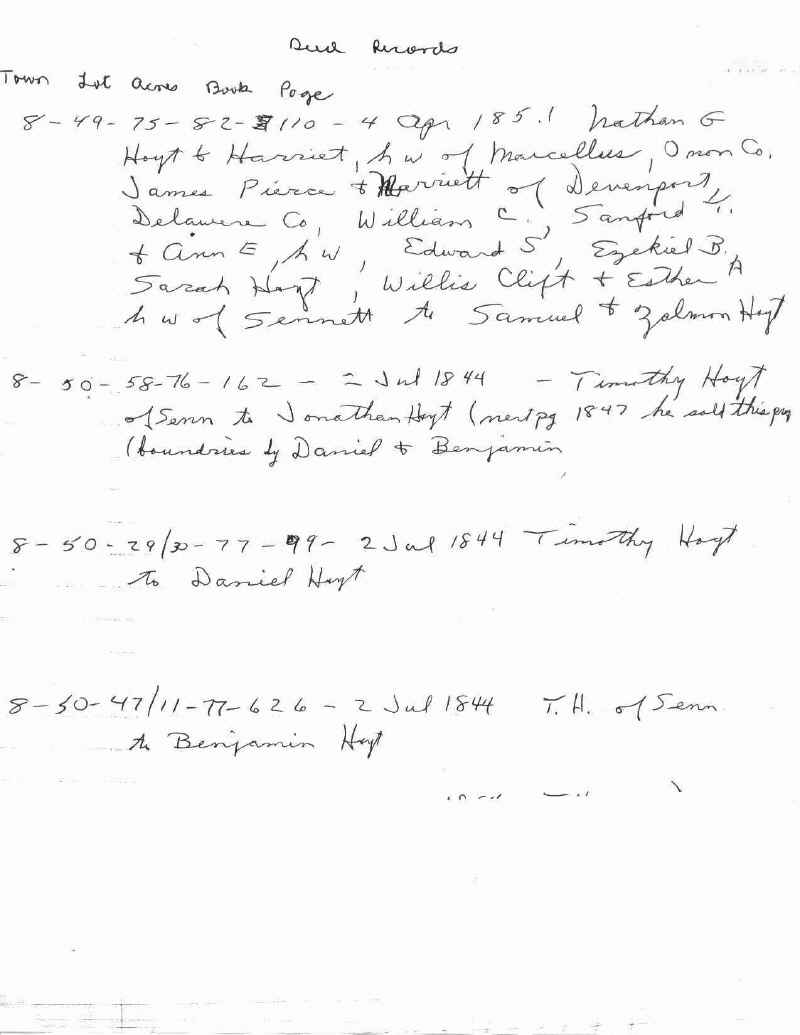 Deed Records
Town Lot Acres Book Page
8-49-75-82-110 - 4 Apr 1851 Nathan G
Hoyt & Harriet, h w of Marcellus, Onon Co.
James Pierce & Harriett of Devenport,
Delawere Co, William C., Sanford Y.
& Ann E, h w, Edward S, Ezekiel B.,
Sarah Hoyt, Willis Clift & Esther A
h w of Sennett to Samuel & Zalmon Hoyt
8-50-58-76-162 - 2 Jul 1844 - Timothy Hoyt
of Senn to Jonathan Hoyt (next pg 1847 he sold this prp
(boundries by Daniel & Benjamin
8-50-29/30-77-99- 2 Jul 1844 Timothy Hoyt
to Daniel Hoyt
8-50-47/11-77-626 - 2 Jul 1844 T.H. of Senn
to Benjamin Hoyt